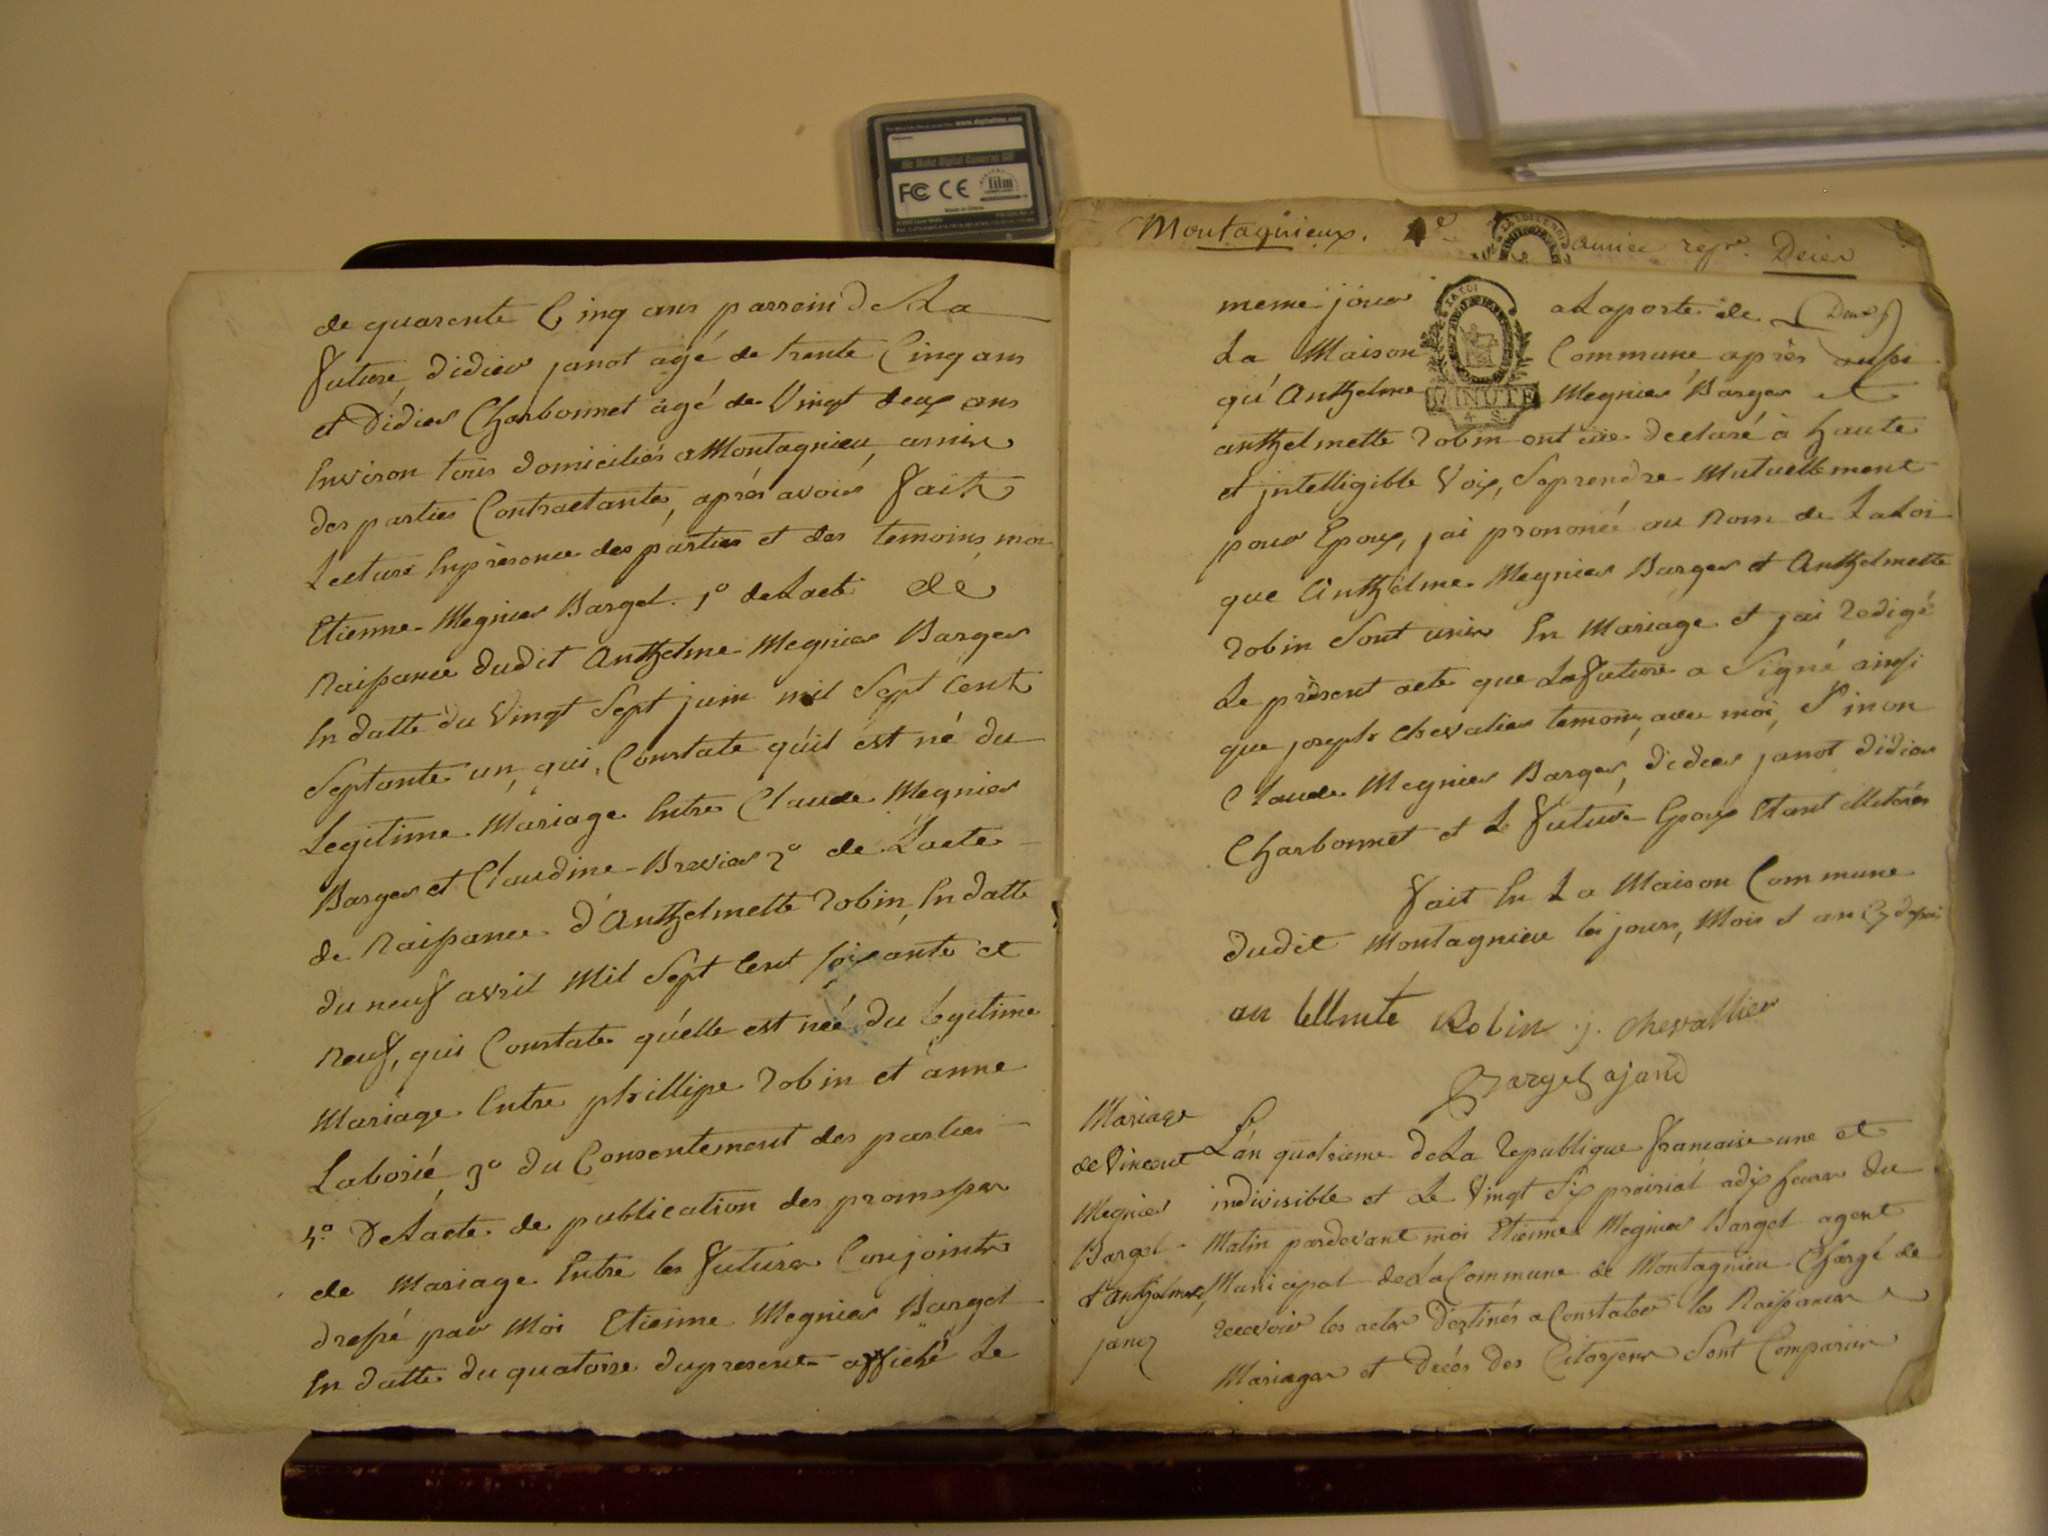 www.digitalfilm.com
We Make Digital Cameras GO
FC CE film
de quarente Cinq ans parrein de La
future, didier janot agé de trente Cinq ans
et Didier Charbonnet agé de Vingt deux ans
Environ tous domiciliés a Montagnieu, amix
des parties Contractantes, après avoir fait
Lecture En présence des parties et des temoins, moi
Etienne Megnier Bargel. 1º de Lacte de
Naissance dudit Anthelme Megnier Barger
En datte du Vingt Sept juin mil Sept Cent
Septante un, qui, Constate qu'il est né du
Legitime Mariage Entre Claude Megnier
Barger et Claudine Brevier 2º de L'acte
de Naissance d'Anthelmette Robin, En datte
du neuf avril Mil Sept Cent soixante et
Neuf, qui Constate qu'elle est née du legitime
Mariage Entre phillipe Robin et anne
Laborié 3º du Consentement des parties
4º De Lacte de publication des promesses
de Mariage Entre les futurs Conjoints
dressé par Moi Etienne Megnier Bargel
En datte du quatorze du present affiché Le
Montagnieux. 4e année repe. Deier
MINUTE
meme jour a Laporte de Deux s
La Maison Commune, après aussi
qu'Anthelme Megnier Barger et
anthelmette Robin ont eu declaré à haute
et jntelligible Voix, Seprendre Mutuellement
pour Epoux, jai prononcé au Nom de LaLoi
que Anthelme Megnier Barger et Anthelmette
Robin Sont unix En Mariage et jai Redigé
Le présent acte que La future a Signé ainsi
que joseph chevalier temoin, avec moi, Sinon
Claude Megnier Barger, didier janot didier
Charbonnet et Le future Epoux Etant illiterés
fait En La Maison Commune
dudit Montagnieu les jours, Mois et an
Robin j. chevallier
Bargel ajand
Mariage
de Vincent
Megnier
Bargel
d'anthelme
janez
L'an quatrieme de La Republique francaise une et
indivisible et Le Vingt Six prairial a dix heures du
Matin pardevant moi Etienne Megnier Bargel agent
Municipal de La Commune de Montagnieu Chargé de
recevoir les actes Deztinés a Constater les Naissances
Mariages et Décés des Citoyens Sont Comparus